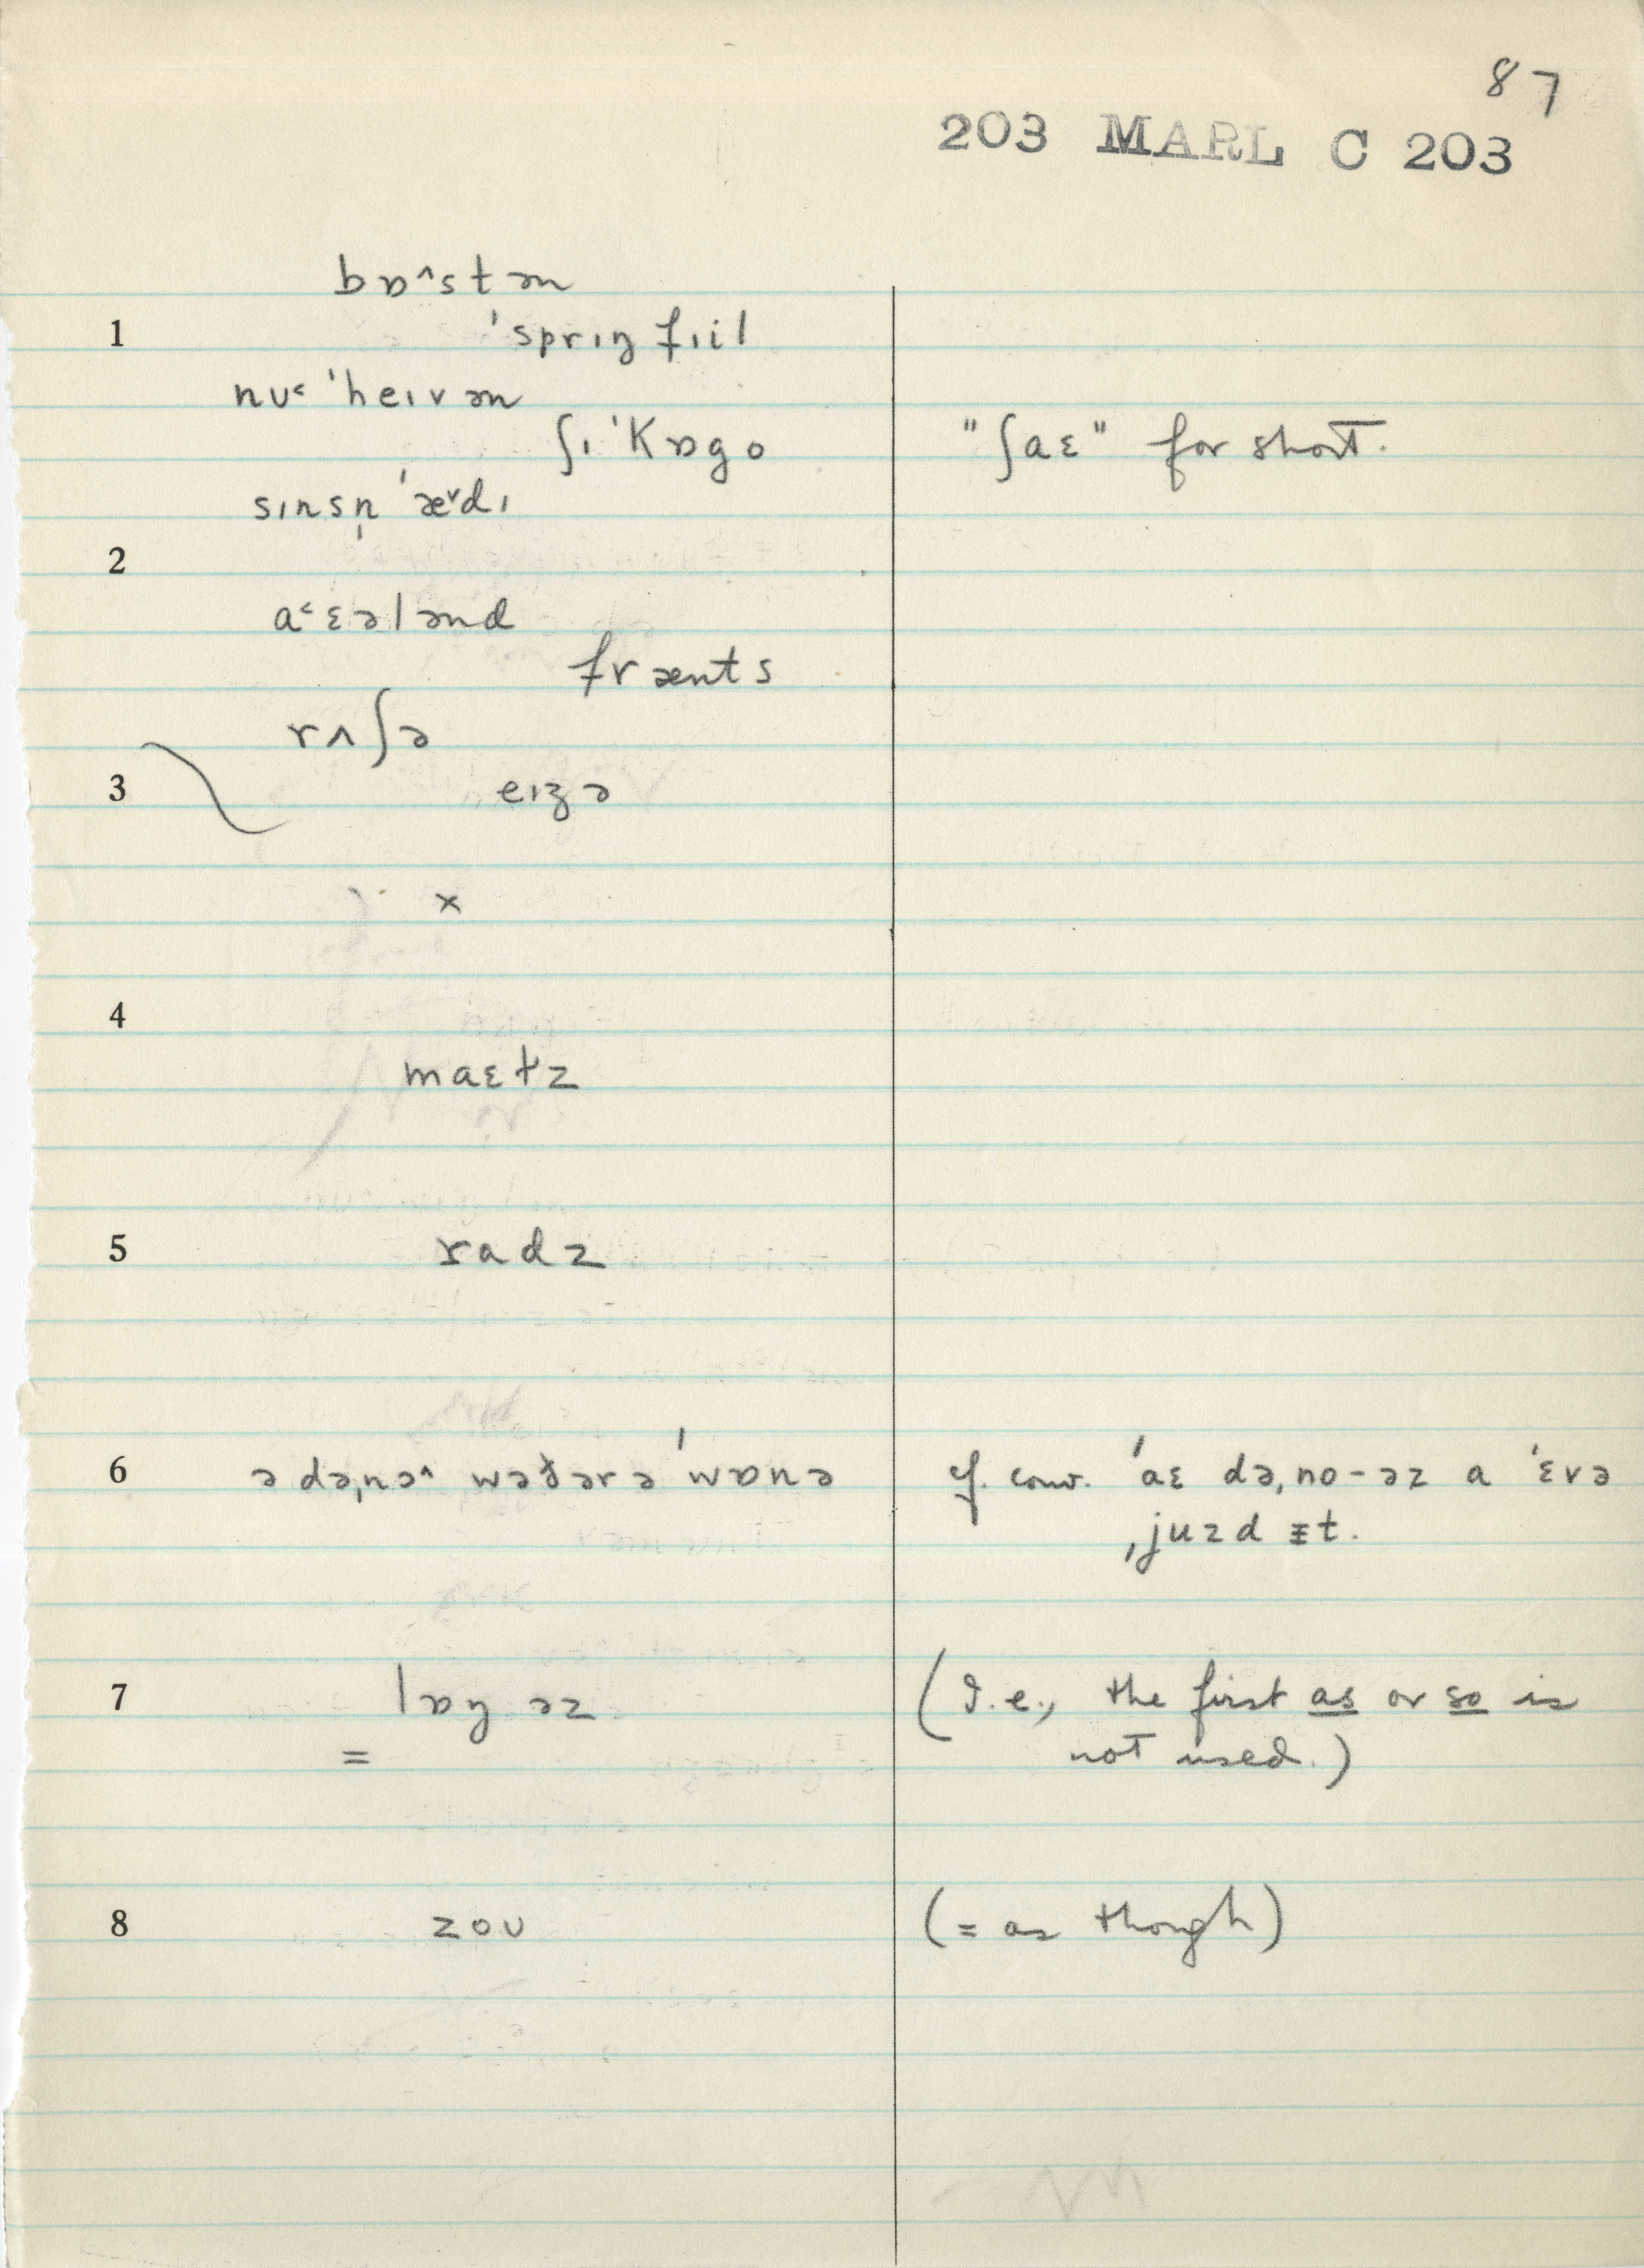 87
203 MARL C 203
bɒ^stən
1 'sprɪŋfɪil
nʊ˂ 'heɪvən
ʃɪ'Kɒgo "ʃaɛ" for short.
sɪnsn̩'æ˅dɪ
2
a˂ɛələnd
frænts
rʌʃə
3 eɪʒə
x
4
maɛt̬z
5 radz
6 ə də,nə^ wət̬ərə'wɒnə cf. conv. 'aɛ də,no-əz a 'ɛvə
,juzd ɪt.
7 lɒŋ əz (I.e., the first as or so is
= not used.)
8 zoʊ (= as though)